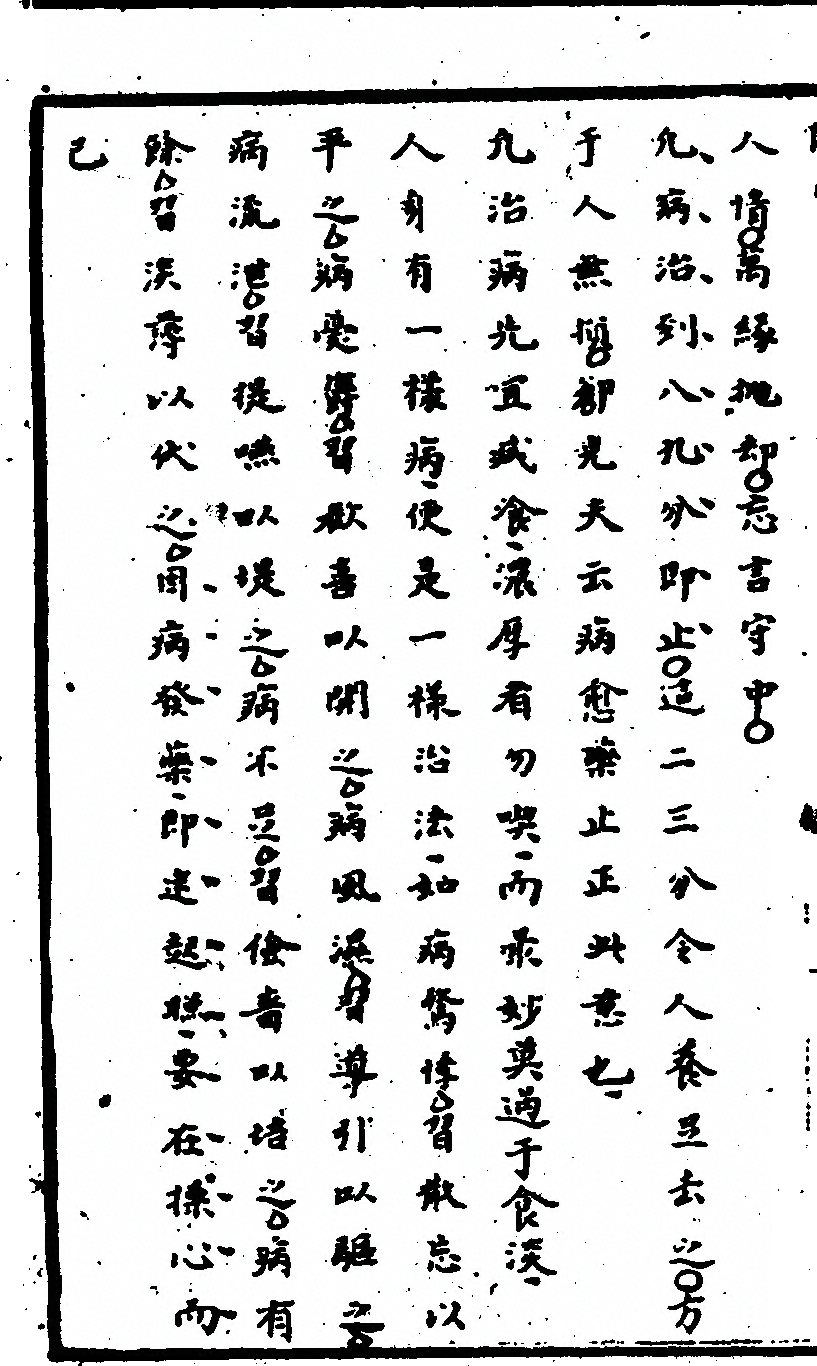 人情萬緣拋却忘言守中
凢病治到八九分即止這二三分令人養足去之方
于人無損郤堯夫云病愈藥止正此意也
凢治病先宜减飡濃厚者勿喫而最妙莫過于食淡
人身有一樣病便是一樣治法如病驚悸習散忘以
平之病憂欝習歡喜以開之病風濕習導引以驅之
病流泄習提嚥以堤之病不足習儉嗇以培之病有
餘習淡薄以伐之因病發藥即迷起聰要在操心而
已